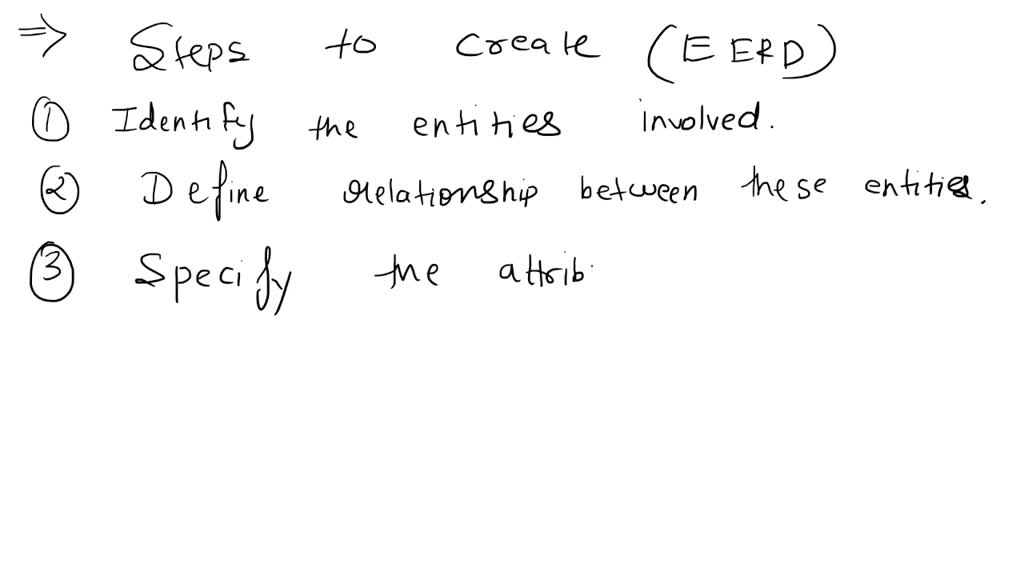 ⇒ Steps to create (EERD)
① Identify the entities involved.
② Define relationship between these entities.
③ Specify the attrib